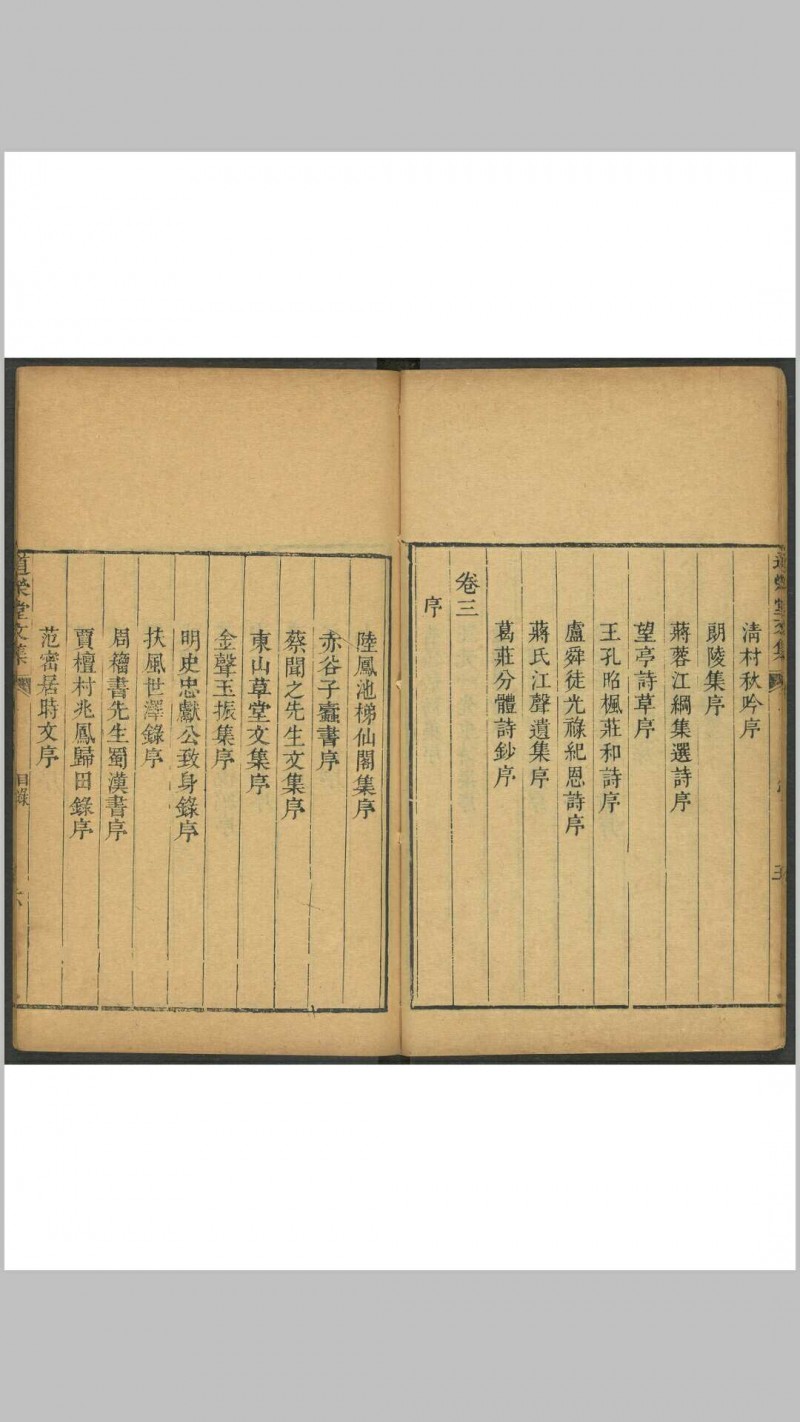 清村秋吟序
朗陵集序
蔣蓉江綱集選詩序
望亭詩草序
王孔昭楓莊和詩序
盧舜徒光祿紀恩詩序
蔣氏江聲遺集序
葛莊分體詩鈔序
卷三
序
陸鳳池梯仙閣集序
赤谷子蠹書序
蔡聞之先生文集序
東山草堂文集序
金聲玉振集序
明史忠獻公致身錄序
扶風世澤錄序
周穭書先生蜀漢書序
賈檀村兆鳳歸田錄序
范密居時文序
道榮堂文集
目錄
六